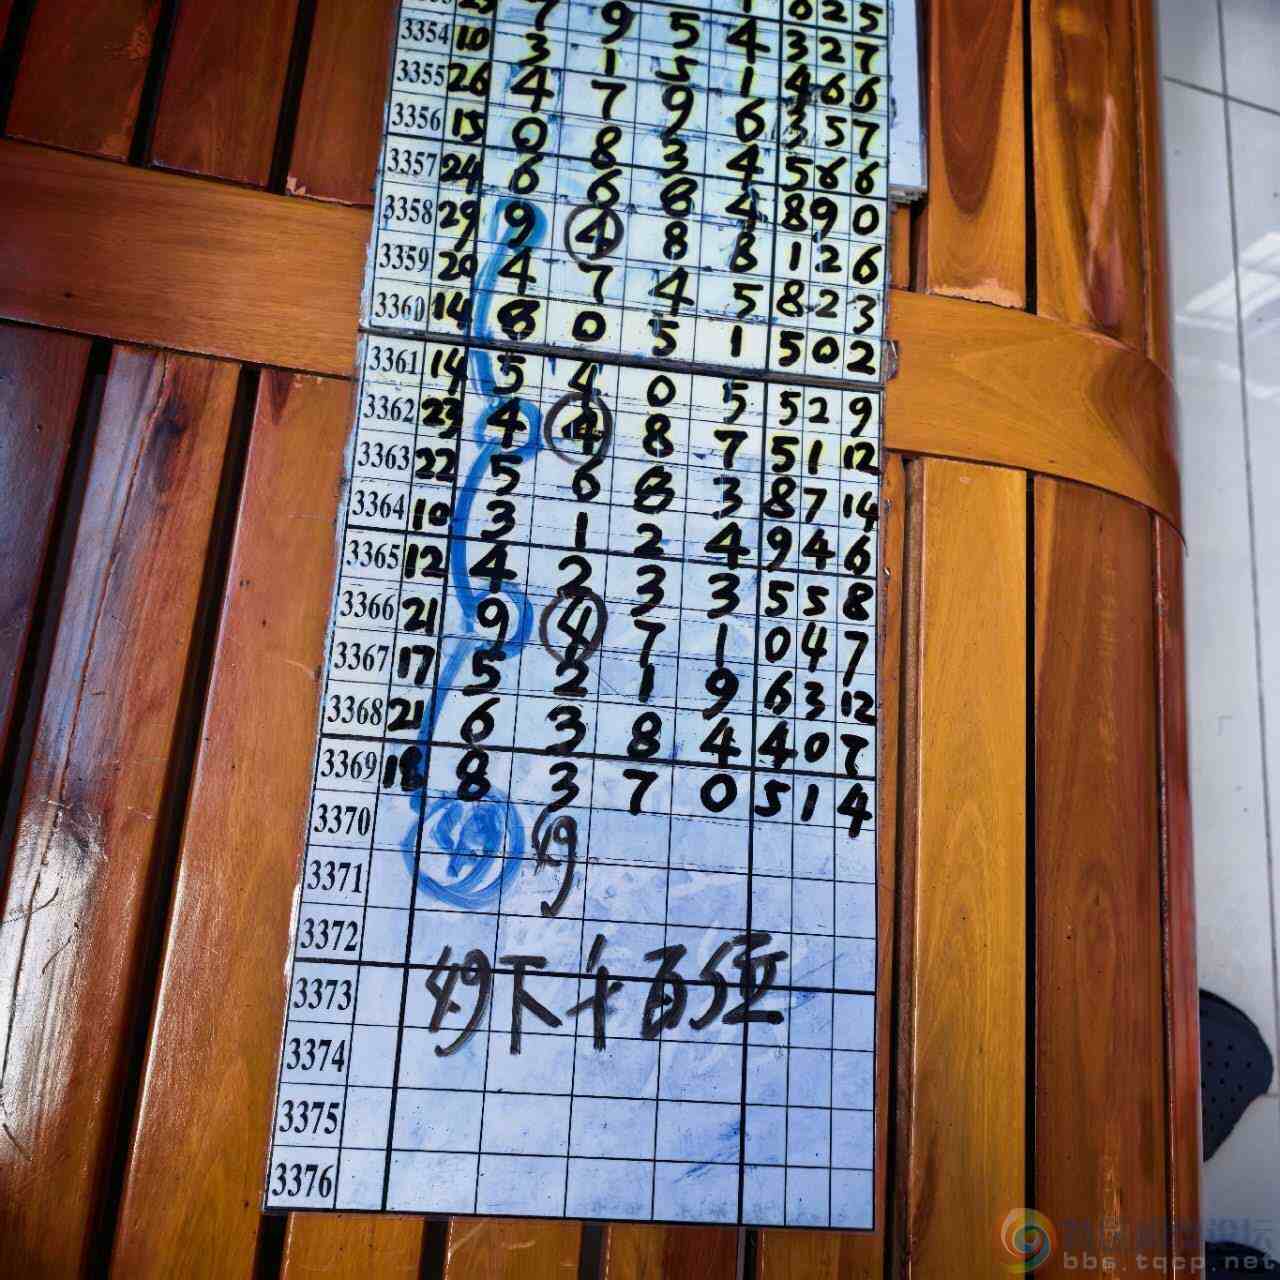 7 9 5 4 0 2 5
3354 10 3 1 5 1 3 2 7
3355 26 4 7 9 6 4 6 6
3356 15 0 8 3 4 3 5 7
3357 24 6 6 8 4 5 6 6
3358 29 9 4 8 8 8 9 0
3359 20 4 7 4 5 1 2 6
3360 14 8 0 5 1 8 2 3
5 0 2
3361 14 5 4 0 5 5 2 9
3362 23 4 4 8 7 5 1 12
3363 22 5 6 8 3 8 7 14
3364 10 3 1 2 4 9 4 6
3365 12 4 2 3 3 5 5 8
3366 21 9 4 7 1 0 4 7
3367 17 5 2 1 9 6 3 12
3368 21 6 3 8 4 4 0 7
3369 18 8 3 7 0 5 1 4
3370 49 9
3371
3372
49下十百位
3373
3374
3375
3376
bbs.tqcp.net